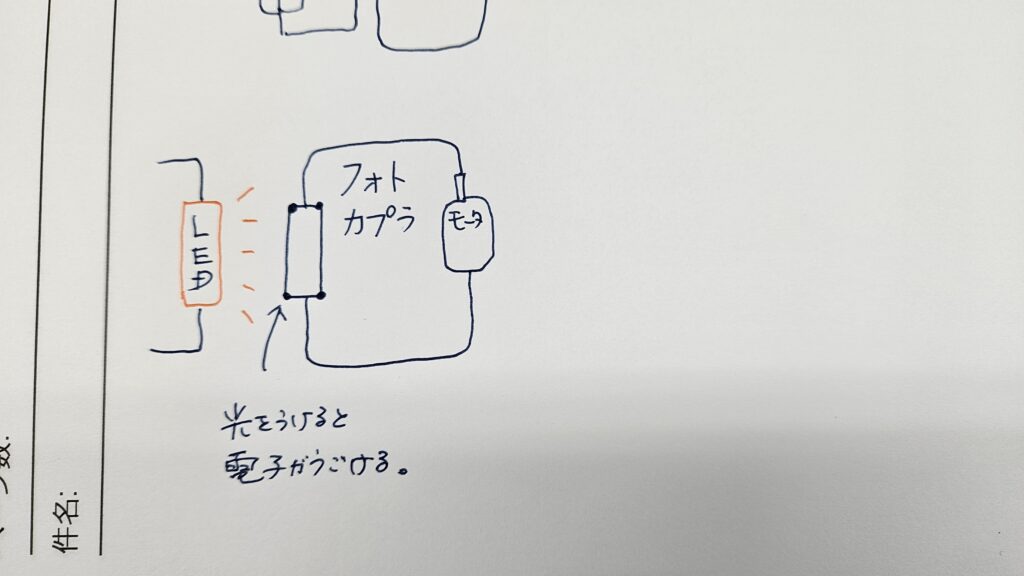 フォト
カプラ
モータ
LED
光をうけると
電子がうごける。
件名: